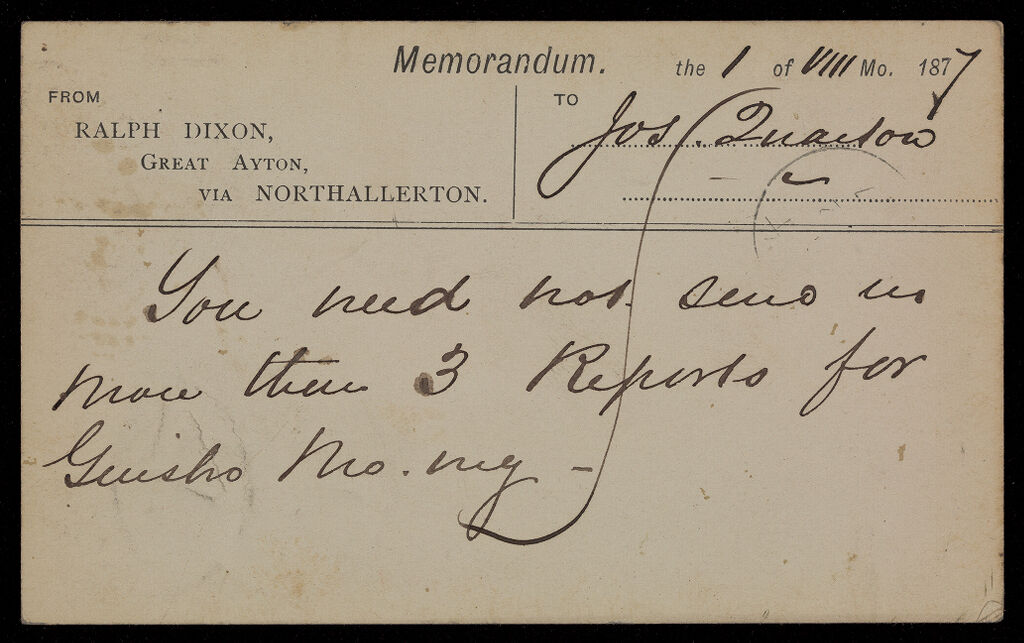 Memorandum. the 1 of VIII Mo. 1877
FROM
RALPH DIXON,
GREAT AYTON,
VIA NORTHALLERTON.
TO
Jos.
You need not send us
more than 3 Reports for
Guisbro Mo. mg -